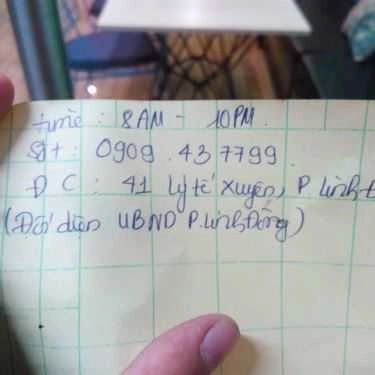 time : 8AM - 10PM.
Sđt : 0909.437799
ĐC : 41 Lý tế Xuyên, P. Linh Đ
(Đối diện UBND P. Linh Đông)